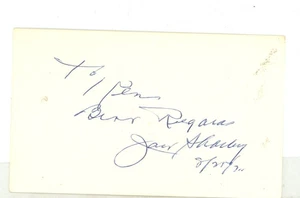 To Ken
Best Regards
Jack Sharkey